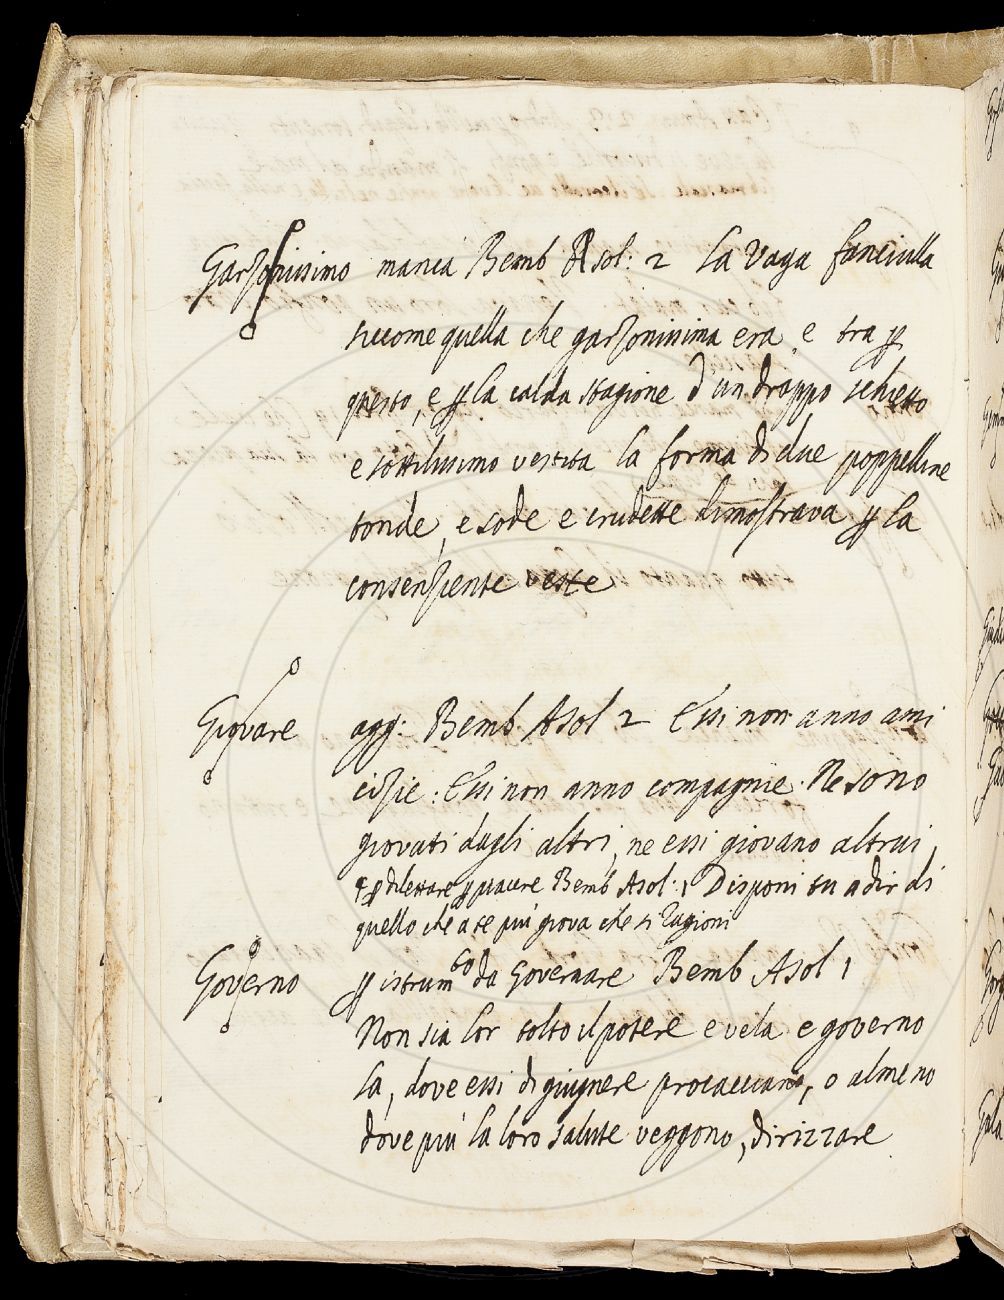 Garzonissimo manca Bemb Asol: 2 La vaga fanciulla
siccome quella che garzonissima era e tra ꝑ
questo, e ꝑ la calda stagione d'un drappo schietto
e sottilissimo vestita la forma di due poppelline
tonde, e sode e crudette dimostrava ꝑ la
consenziente veste
Giovare agg: Bemb. Asol 2 Essi non anno ami
cizie: Essi non anno compagnie. Ne sono
giovati dagli altri, ne essi giovano altrui,
ꝑ dilettare ꝑ piacere Bemb Asol: 1 Disponi tu a dir di
quello che a te più giova che si ragioni
Governo ꝑ istrum.to da governare Bemb Asol 1
Non sia lor tolto il potere e vela e governo
la, dove essi di giugnere procacciano, o almeno
dove più la loro salute veggono, dirizzare